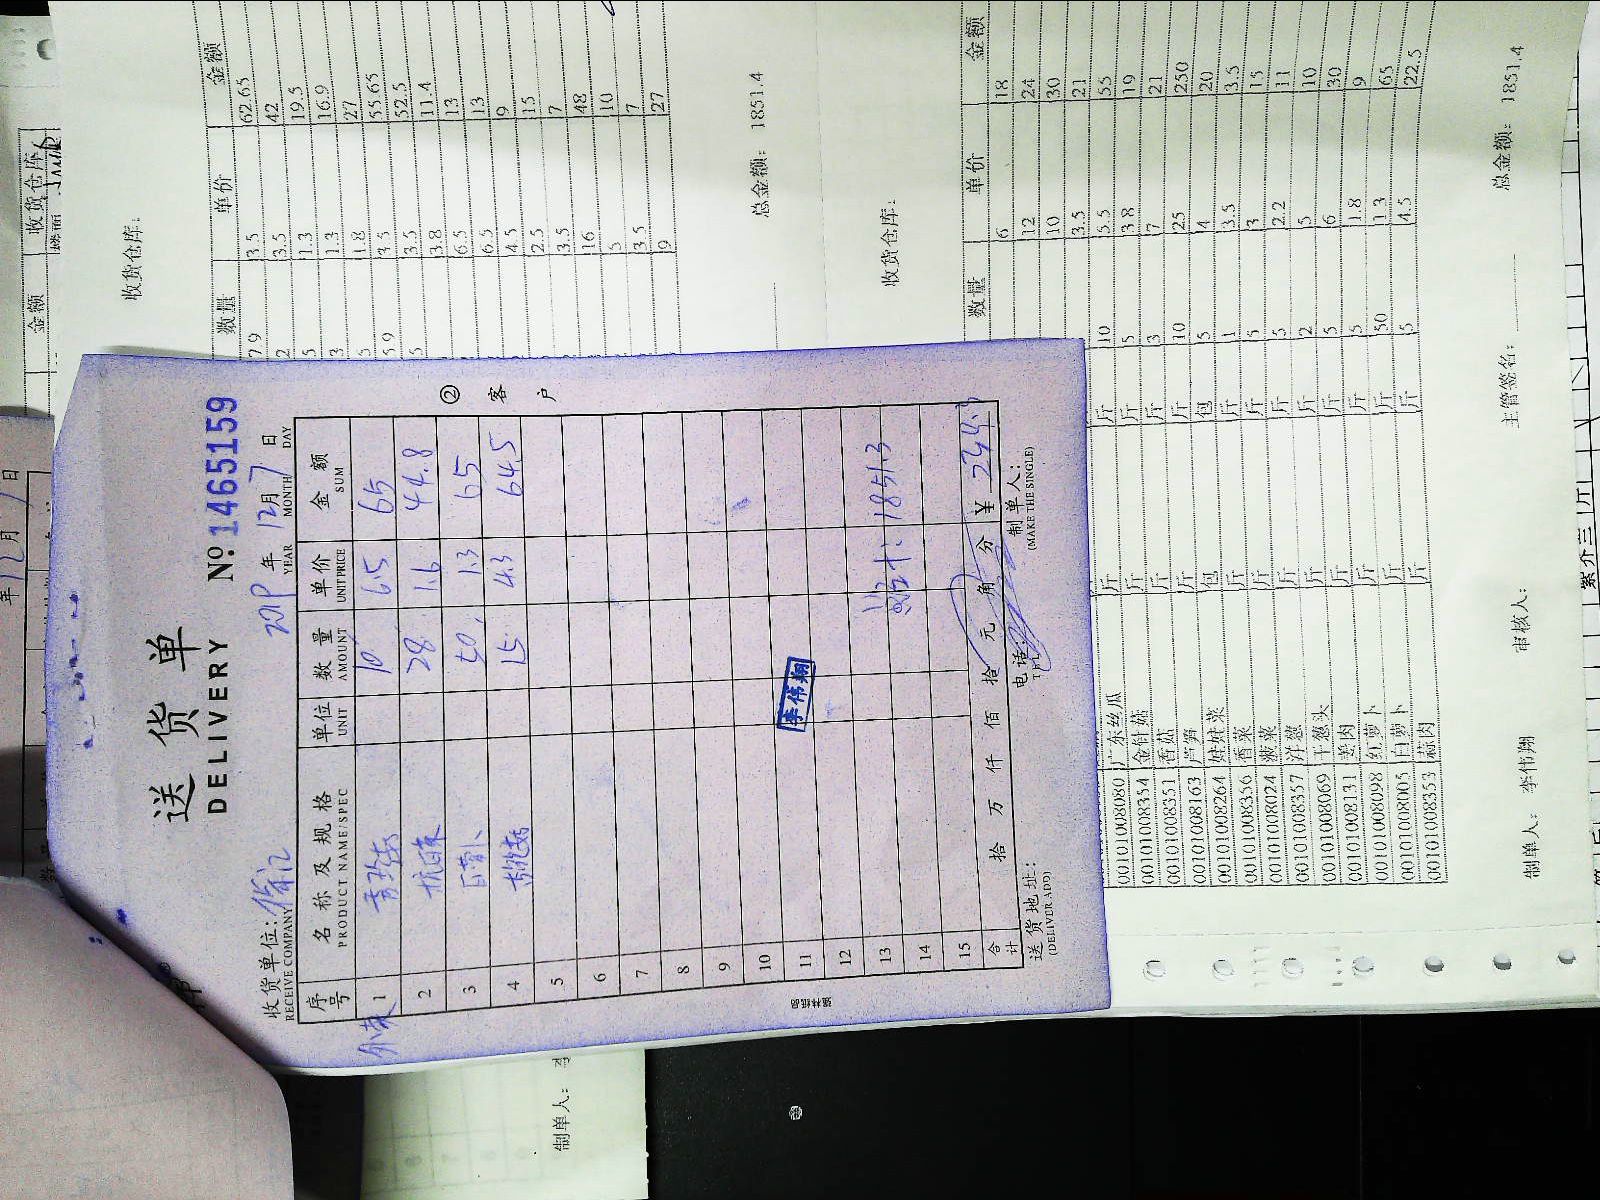 送货单
DELIVERY
№: 1465159
收货单位:徐记
RECEIVE COMPANY
2019 年 12月 7 日
YEAR MONTH DAY
序号 名称及规格 单位 数量 单价 金额
PRODUCT NAME/SPEC UNIT AMOUNT UNIT PRICE SUM
1 10 6.5 65
2 28 1.6 44.8
3 白萝卜 50 1.3 65
4 15 4.3 64.5
5
6
7
8
9
10
11
12
13 1851.3
14
15
合计 拾 万 仟 佰 拾 元 角 分 ¥
送货地址:
(DELIVER ADD)
电话:
制单人:
(MAKE THE SINGLE)
② 客户
李伟翔
收货仓库:
数量 单价 金额
7.9 3.5 62.65
2 3.5 42
5 1.3 19.5
3 1.3 16.9
5 1.8 27
5.9 3.5 55.65
5 3.5 52.5
3.8 11.4
6.5 13
6.5 13
4.5 9
2.5 15
3.5 7
16 48
5 10
3.5 7
9 27
总金额: 1851.4
收货仓库:
数量 单价 金额
6 18
12 24
10 30
3.5 21
00101008080 广东丝瓜 斤 斤 10 5.5 55
00101008354 金针菇 斤 斤 5 3.8 19
00101008351 香菇 斤 斤 3 7 21
00101008163 芦笋 斤 斤 10 25 250
00101008264 娃娃菜 包 包 5 4 20
00101008356 香菜 斤 斤 1 3.5 3.5
00101008024 菠菜 斤 斤 5 3 15
00101008357 洋葱 斤 斤 5 2.2 11
00101008069 干葱头 斤 斤 2 5 10
00101008131 姜肉 斤 斤 5 6 30
00101008098 红萝卜 斤 斤 5 1.8 9
00101008005 白萝卜 斤 斤 50 1.3 65
00101008353 蒜肉 斤 斤 5 4.5 22.5
制单人: 李伟翔 审核人: 主管签名: 总金额: 1851.4
收货仓库
金额
年 12月 1日
制单人: